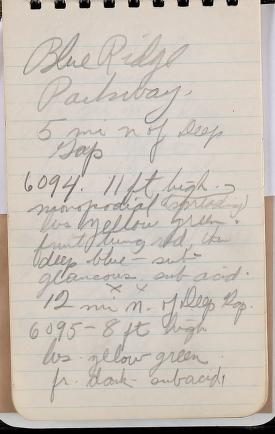 Blue Ridge
Parkway.
5 mi n of Deep
Gap
6094. 11 ft high.
monopodial (spreading)
lvs yellow green.
fruit turng red, then
deep blue - sub-
glaucous, subacid.
x x
12 mi N. of Deep Gap.
6095 - 8 ft high
lvs. yellow green
fr. dark subacid,